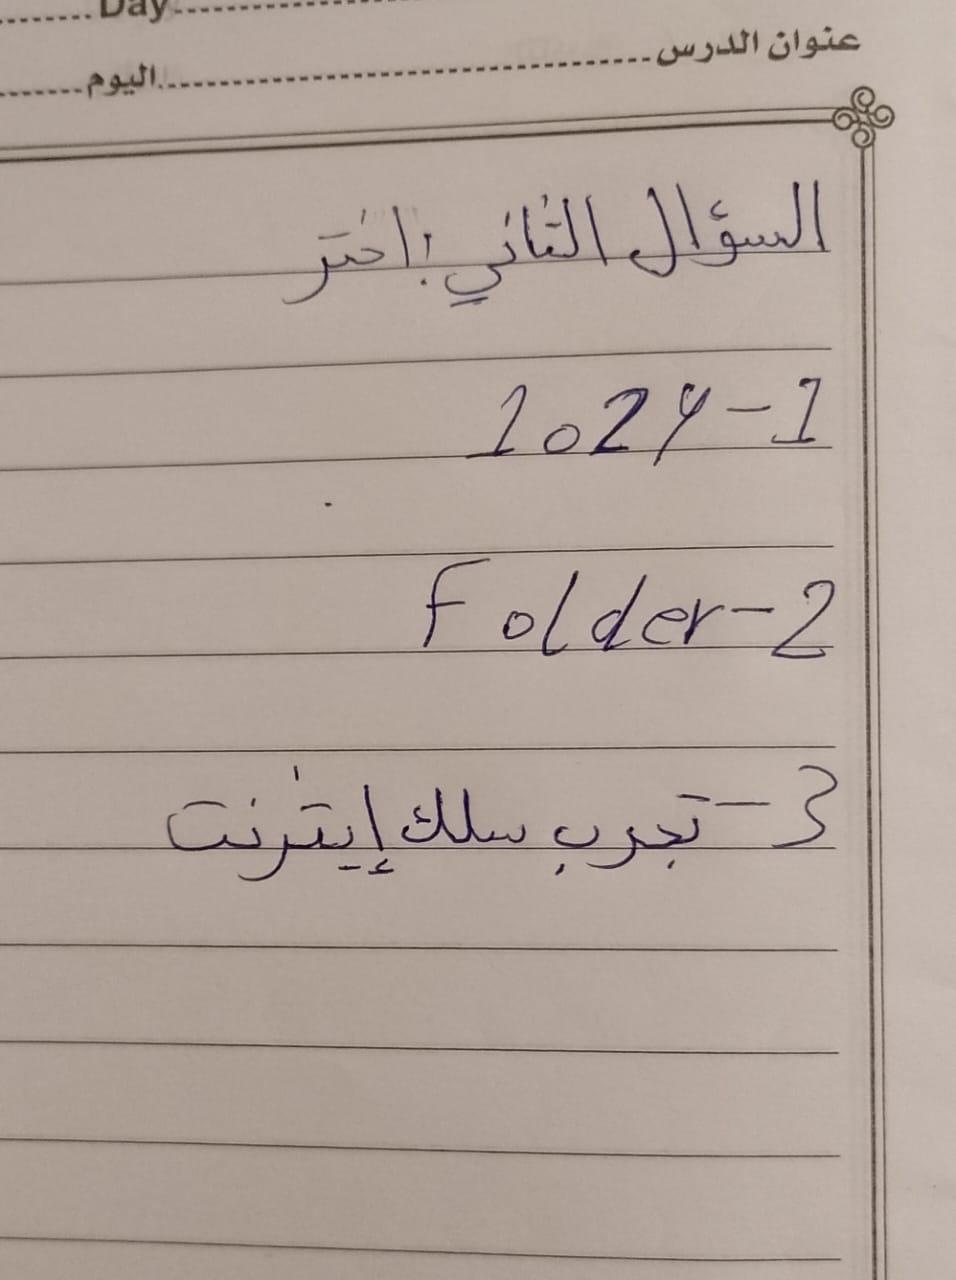 Day
عنوان الدرس
اليوم
السؤال الثاني: اختر
1- 1024
2- Folder
3- تجرب سلك إيترنت